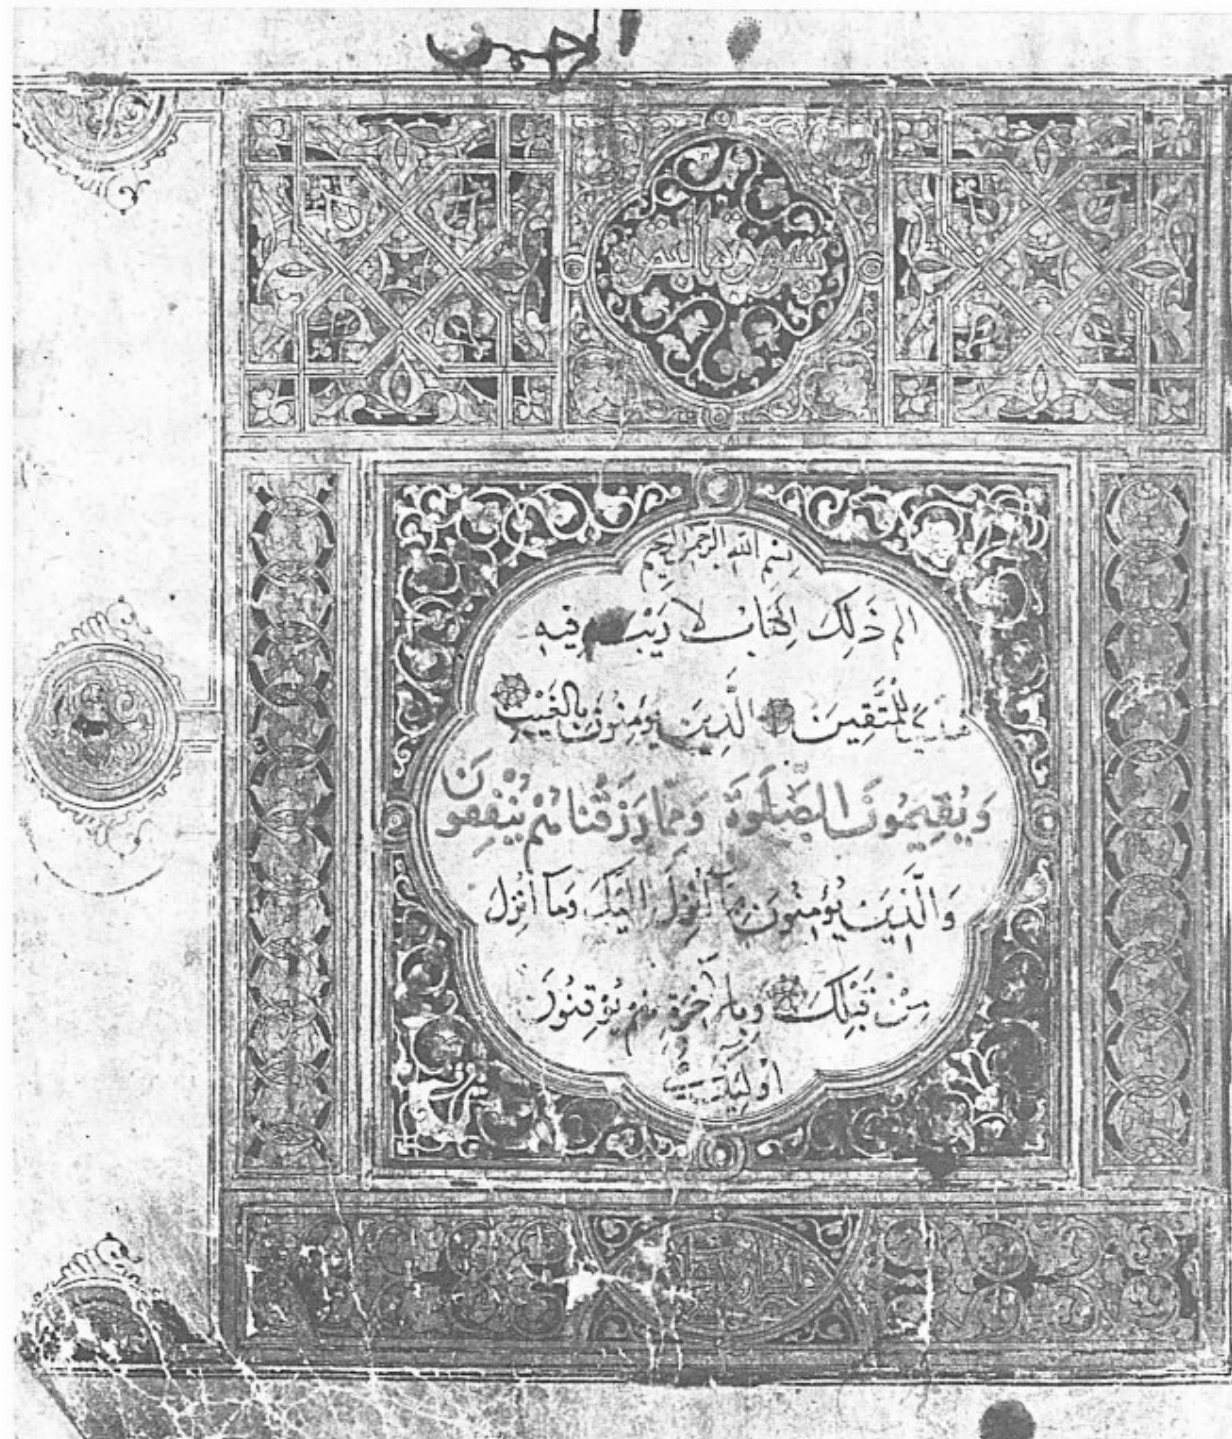 سورة البقرة
بسم الله الرحمن الرحيم
الم ذَلِكَ الكِتَابُ لَا رَيْبَ فِيهِ
هدى لِلْمُتَّقِينَ الَّذِينَ يُؤمِنُونَ بِالْغَيْبِ
وَيُقِيمُونَ الصَّلَوةَ وَمِمَّا رَزَقْنَاهُمْ يُنْفِقُونَ
وَالَّذِينَ يُؤمِنُونَ بِمَا أُنْزِلَ إِلَيْكَ وَمَا أُنْزِلَ
مِنْ قَبْلِكَ وَبِالآخِرَةِ هُمْ يُوقِنُونَ
أُولَئِكَ